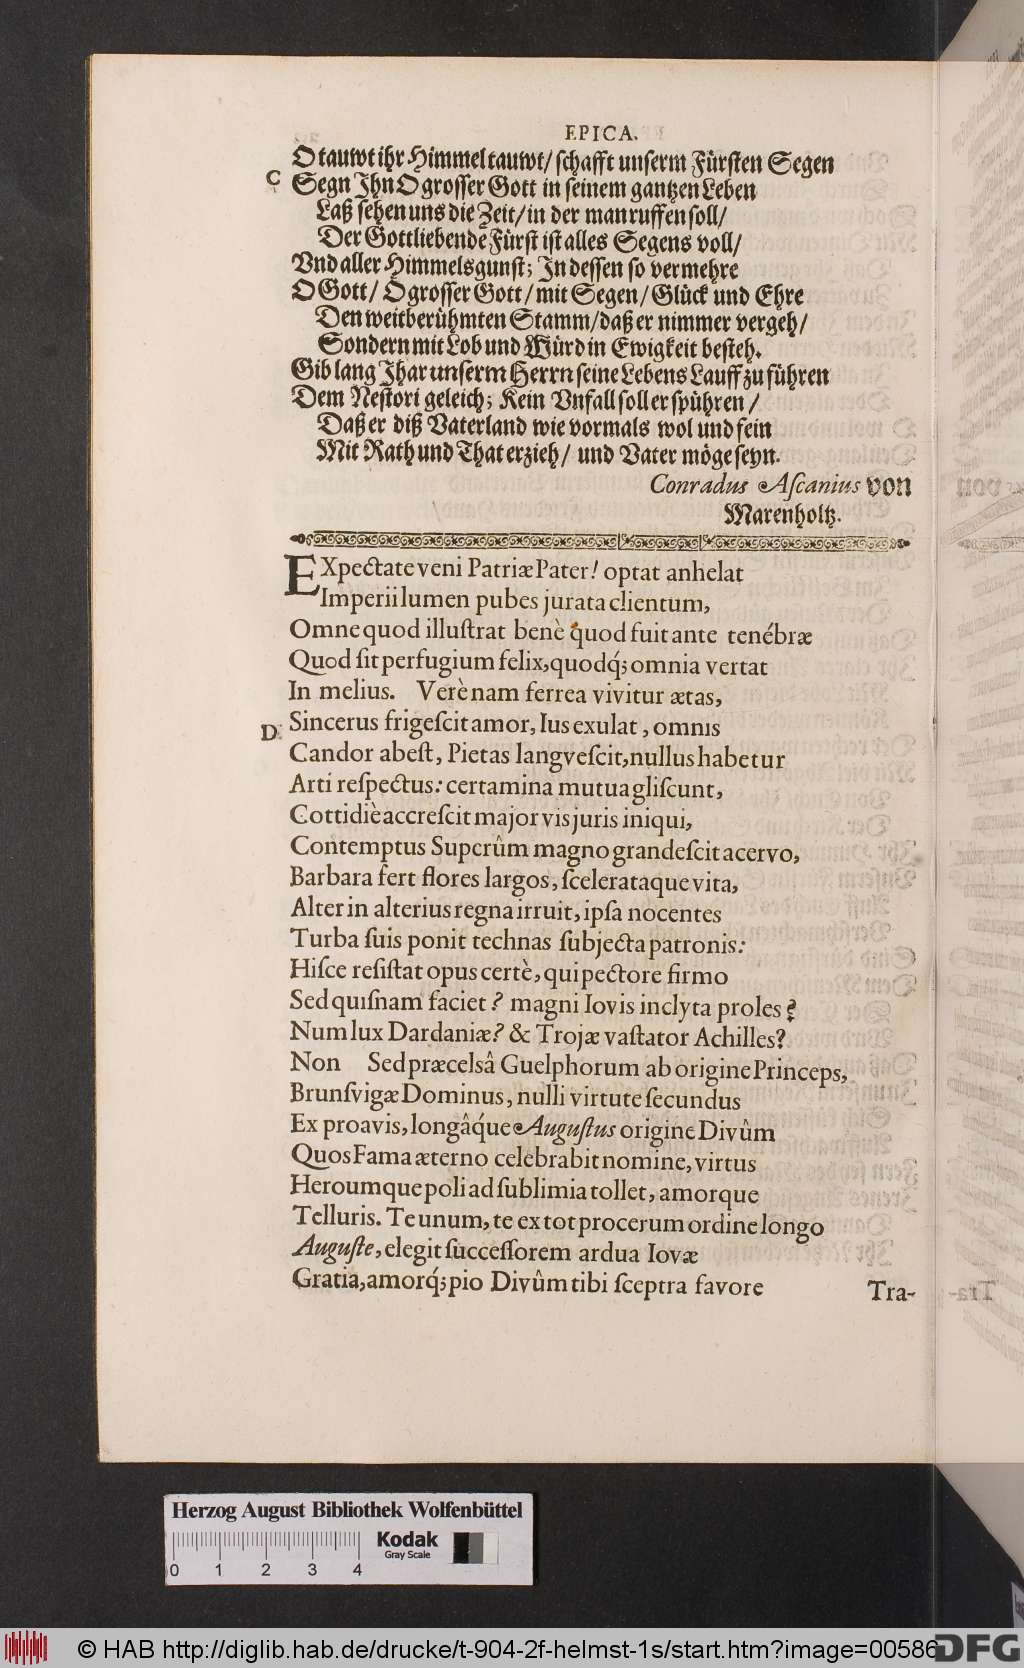 EPICA.
O tauwt ihr Himmel tauwt/ schafft unserm Fürsten Segen
C Segn Ihn O grosser Gott in seinem gantzen Leben
Laß sehen uns die Zeit/ in der man ruffen soll/
Der Gottliebende Fürst ist alles Segens voll/
Vnd aller Himmelsgunst; In dessen so vermehre
O Gott/ O grosser Gott/ mit Segen/ Glück und Ehre
Den weitberühmten Stamm/ daß er nimmer vergeh/
Sondern mit Lob und Würd in Ewigkeit besteh.
Gib lang Jhar unserm Herrn seine Lebens Lauff zu führen
Dem Nestori geleich; Kein Vnfall soll er spühren/
Daß er diß Vaterland wie vormals wol und fein
Mit Rath und That erzieh/ und Vater möge seyn.
Conradus Ascanius von
Marenholtz.
EXpectate veni Patriæ Pater! optat anhelat
Imperii lumen pubes jurata clientum,
Omne quod illustrat benè quod fuit ante tenébræ
Quod sit perfugium felix, quodq́; omnia vertat
In melius. Verè nam ferrea vivitur ætas,
D Sincerus frigescit amor, Ius exulat, omnis
Candor abest, Pietas langvescit, nullus habetur
Arti respectus: certamina mutua gliscunt,
Cottidiè accrescit major vis juris iniqui,
Contemptus Superûm magno grandescit acervo,
Barbara fert flores largos, scelerataque vita,
Alter in alterius regna irruit, ipsa nocentes
Turba suis ponit technas subjecta patronis:
Hisce resistat opus certè, qui pectore firmo
Sed quisnam faciet? magni Iovis inclyta proles?
Num lux Dardaniæ? & Trojæ vastator Achilles?
Non Sed præcelsâ Guelphorum ab origine Princeps,
Brunsvigæ Dominus, nulli virtute secundus
Ex proavis, longâq́ue Augustus origine Divûm
Quos Fama æterno celebrabit nomine, virtus
Heroumque poli ad sublimia tollet, amorque
Telluris. Te unum, te ex tot procerum ordine longo
Auguste, elegit successorem ardua Iovæ
Gratia, amorq́; pio Divûm tibi sceptra favore
Tra-
Herzog August Bibliothek Wolfenbüttel
Kodak
Gray Scale
0 1 2 3 4
© HAB http://diglib.hab.de/drucke/t-904-2f-helmst-1s/start.htm?image=00586
DFG